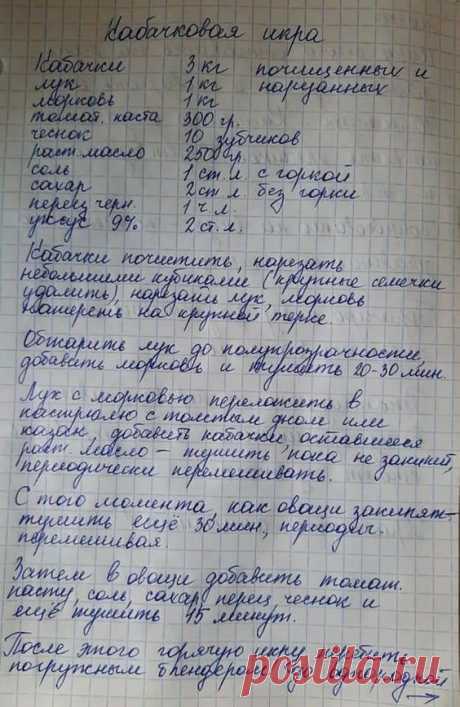 Кабачковая икра
Кабачки 3 кг почищенных и
лук 1 кг нарезанных
морковь 1 кг
томат. паста 300 гр.
чеснок 10 зубчиков
раст. масло 250 гр.
соль 1 ст. л. с горкой
сахар 2 ст. л. без горки
перец черн. 1 ч. л.
уксус 9% 2 ст. л.
Кабачки почистить, нарезать
небольшими кубиками (крупные семечки
удалить), нарезать лук, морковь
натереть на крупной терке.
Обжарить лук до полупрозрачности,
добавить морковь и тушить 20-30 мин.
Лук с морковью переложить в
кастрюлю с толстым дном или
казан, добавить кабачки, оставшееся
раст. масло – тушить пока не закипит,
периодически перемешивать.
С того момента, как овощи закипят-
тушить ещё 30 мин., периодич.
перемешивая.
Затем в овощи добавить томат.
пасту, соль, сахар, перец, чеснок и
ещё тушить 15 минут.
После этого горячую икру взбить
погружным блендером до однородной
postila.ru